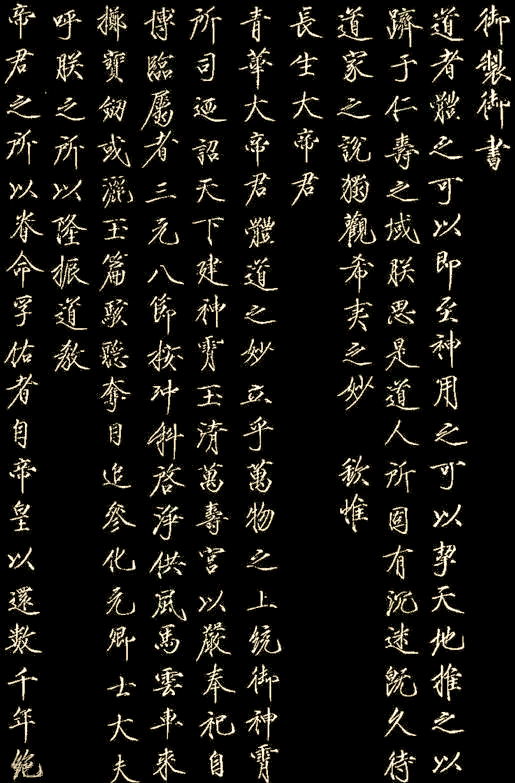 御製御書
道者體之可以即至神用之可以挈天地推之以
躋于仁壽之域朕思是道人所固有沉迷既久待
道家之說獨觀希夷之妙 欽惟
長生大帝君
青華大帝君體道之妙立乎萬物之上統御神霄
所司迺詔天下建神霄玉清萬壽宮以嚴奉祀自
博臨屬者三元八節按沖科啓淨供風馬雲車來
擲寶劒或灑玉篇駭聽奪目追參化元卿士大夫
呼朕之所以隆振道教
帝君之所以眷命孚佑者自帝皇以還數千年絶